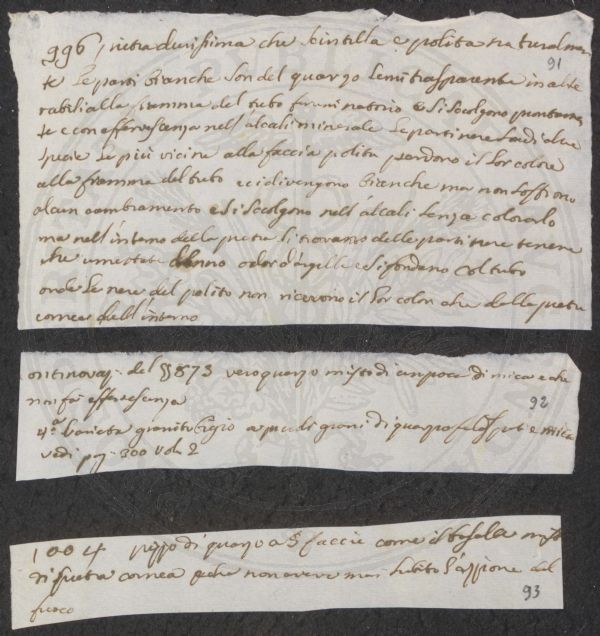 996 pietra durissima che scintilla e polita naturalmen
91
te le parti bianche son del quarzo semitrasparente inalte
rabili alla fiamma del tubo feruminatorio e si sciolgono prontamen
te e con effervescenza nell'alcali minerale le parti nere
le più vicine alla faccia polita perdono il lor colore
alla fiamma del tubo e divengono bianche ma non soffrono
alcun cambiamento e si sciolgono nell'alcali senza colorarlo
ma nell'interno della pietra si trovano delle parti nere tenere
che umettate danno odor d'argilla e si fondano col tubo
onde le nere del polito non ricevono il lor color che dalla pietra
cornea dell'interno
del § 873 vero quarzo misto di un poca di mica e che
non fa effervescenza
92
4.a varietà granito bigio a piccoli grani di quarzo feldspato e mica
vedi pag. 300 vol. 2
1004 pezzo di quarzo a 5 faccie come il basalte misto
di pietra cornea e che non avere mai subito l'azzione del
93
fuoco